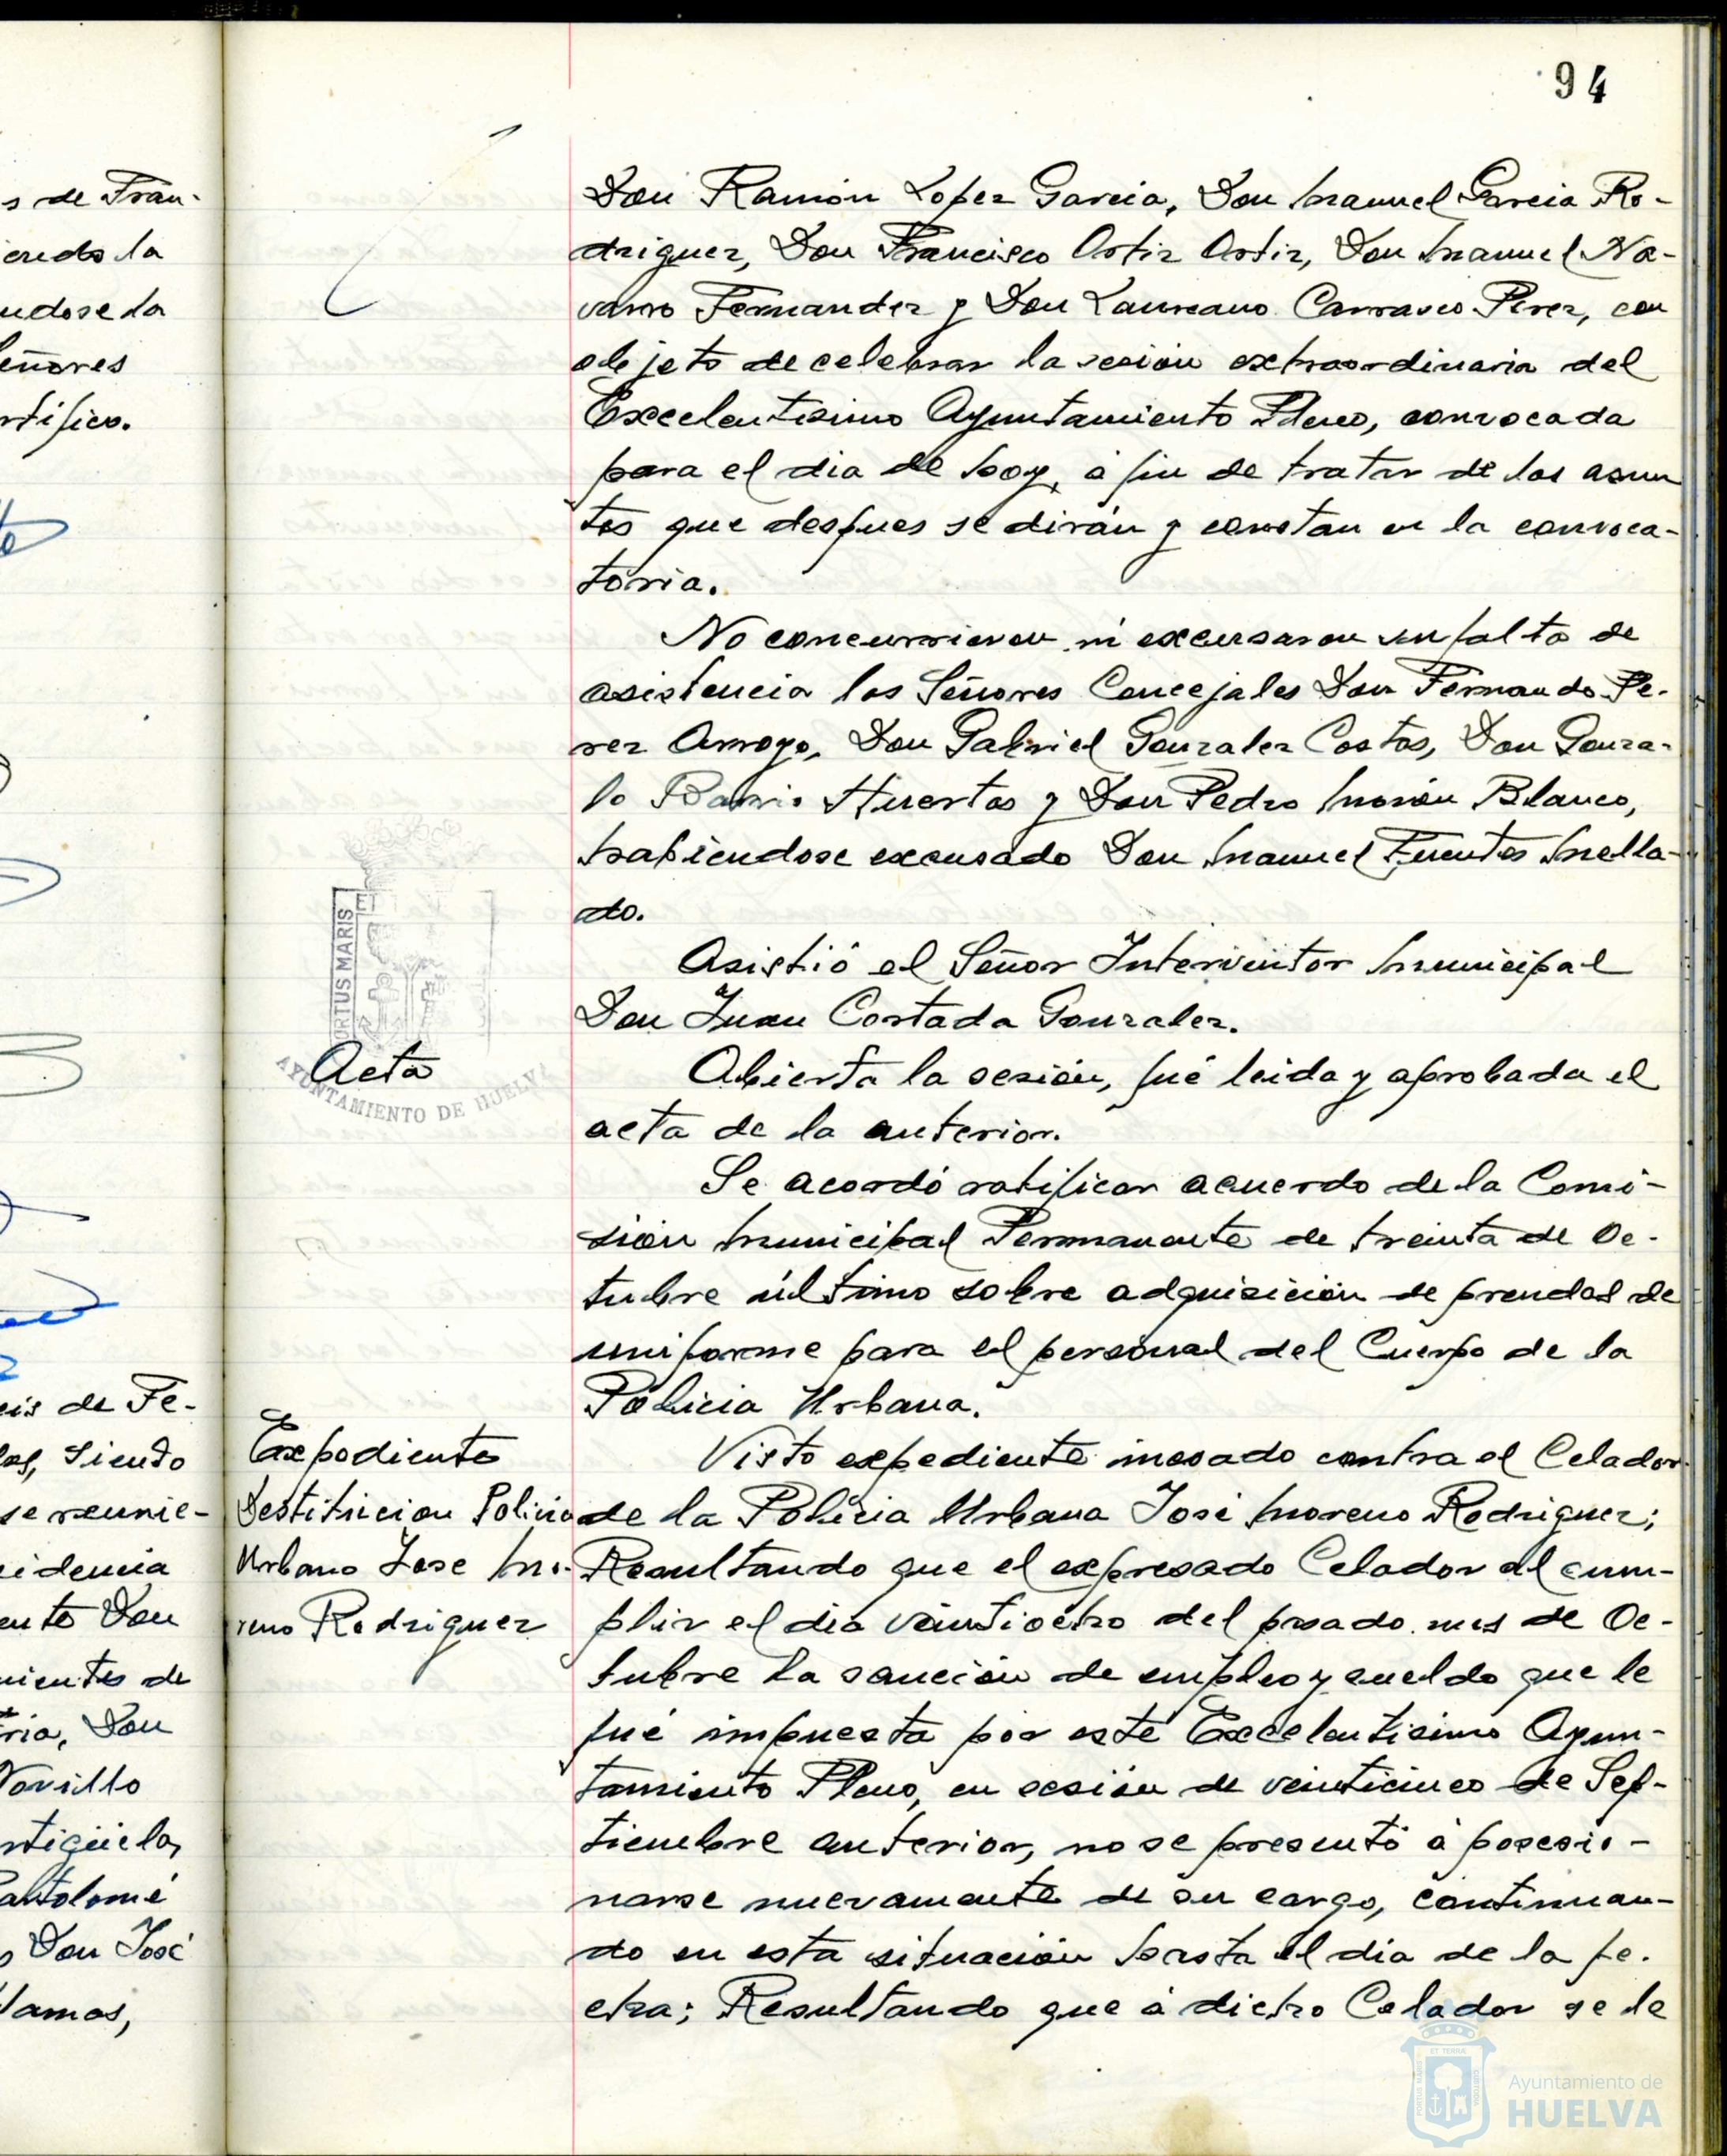 94
s de Fran-
iendo la
ndose la
eñores
rtifico.
eis de Fe-
las, siendo
se reunie-
sidencia
ente Don
nientes de
ria, Don
Novillo
rtigüela,
Bartolomé
s Don José
lamas,
Acta
Expediente
Destitucion Policia
Urbano Jose Mo-
reno Rodriguez
Don Ramón Lopez Garcia, Don Manuel Garcia Ro-
driguez, Don Francisco Ortiz Ortiz, Don Manuel Na-
varro Fernandez y Don Laureano Carrasco Perez, con
objeto de celebrar la sesión extraordinaria del
Excelentisimo Ayuntamiento Pleno, convocada
para el dia de hoy, á fin de tratar de los asun
tos que despues se dirán y constan en la convoca-
toria.
No concurrieron ni excusaron su falta de
asistencia los Señores Concejales Don Fernando Pe-
rez Arroyo, Don Gabriel Gonzalez Costas, Don Gonza-
lo Barrio Huertas y Don Pedro Morón Blanco,
habiendose excusado Don Manuel Fuentes Mella-
do.
Asistió el Señor Interventor Municipal
Don Juan Costada Gonzalez.
Abierta la sesión, fué leida y aprobada el
acta de la anterior.
Se acordó ratificar acuerdo de la Comi-
sión Municipal Permanente de treinta de Oc-
tubre último sobre adquisición de prendas de
uniforme para el personal del Cuerpo de la
Policia Urbana.
Visto expediente incoado contra el Celador
de la Policia Urbana José Moreno Rodriguez;
Resultando que el expresado Celador al cum-
plir el dia veintiocho del pasado mes de Oc-
tubre la sanción de empleo y sueldo que le
fué impuesta por este Excelentisimo Ayun-
tamiento Pleno, en sesión de veinticinco de Sep-
tiembre anterior, no se presentó á posesio-
narse nuevamente de su cargo, continuan-
do en esta situación hasta el dia de la fe-
cha; Resultando que á dicho Celador se le
PORTUS MARIS ET
AYUNTAMIENTO DE HUELVA
Ayuntamiento de
HUELVA